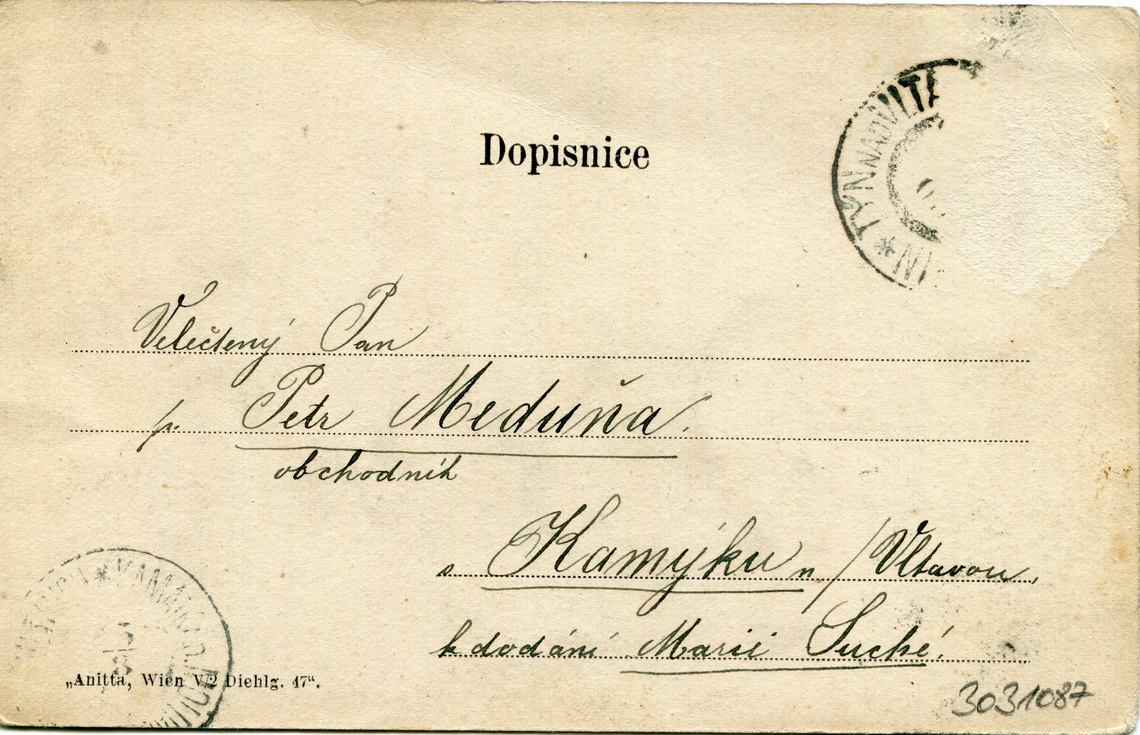 Dopisnice
TÝN NAD VLTA
IN
Velectěný Pan
p. Petr Meduňa.
obchodník
Kamýku n/Vltavou,
k dodání Marii Suché.
„Anitta, Wien V/2 Diehlg. 47“.
3031087